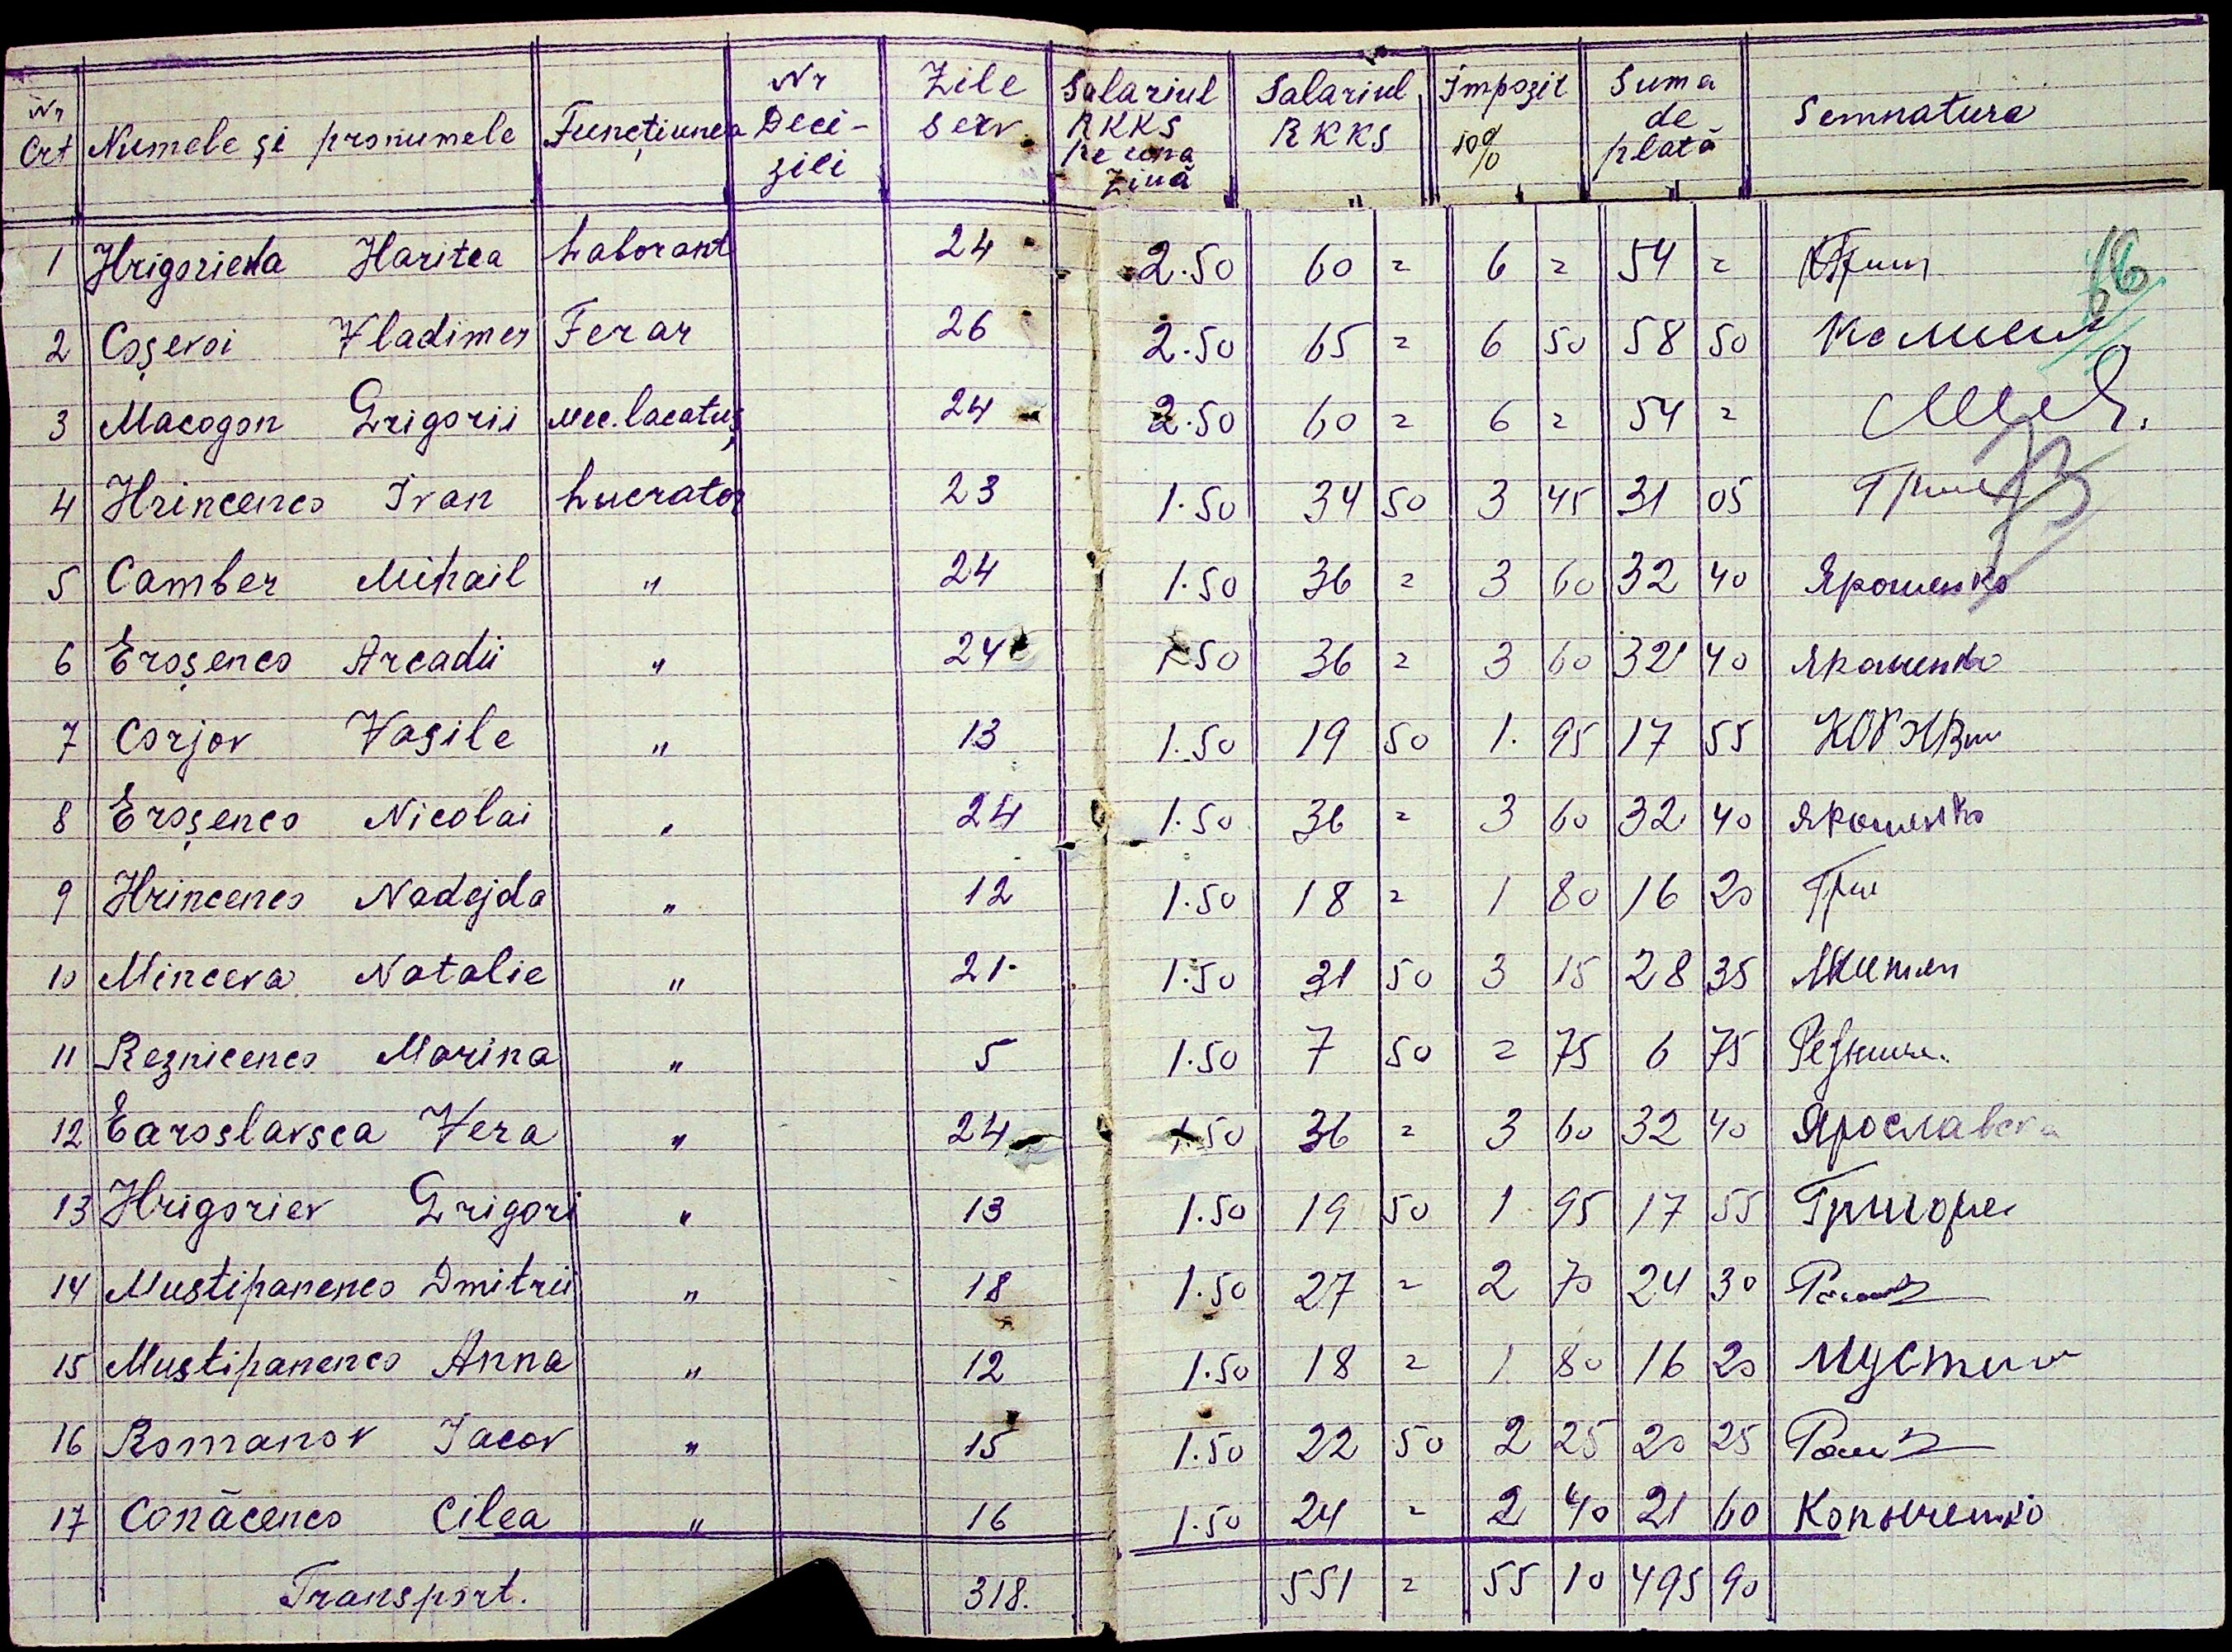 Nr Crt Numele și pronumele Funcțiunea Nr Deci-zili Zile serv. Salariul RKKS pe una Ziuă Salariul RKKS Impozit 10% Suma de plată Semnatura
1 Hrigorieva Haritea Laborant 24 2.50 60 = 6 = 54 =
2 Coșevoi Vladimer Ferar 26 2.50 65 = 6 50 58 50
3 Macogon Grigorii Mec. lacatuș 24 2.50 60 = 6 = 54 =
4 Hrincenco Ivan Lucrator 23 1.50 34 50 3 45 31 05
5 Camber Mihail " 24 1.50 36 = 3 60 32 40 Ярошенко
6 Eroșenco Arcadii " 24 1.50 36 = 3 60 32 40 Ярошенко
7 Corjov Vasile " 13 1.50 19 50 1. 95 17 55
8 Eroșenco Nicolai " 24 1.50 36 = 3 60 32 40 Ярошенко
9 Hrincenco Nadejda " 12 1.50 18 = 1 80 16 20 Гри
10 Minceva Natalie " 21 1.50 31 50 3 15 28 35
11 Reznicenco Marina " 5 1.50 7 50 = 75 6 75
12 Earoslavsca Vera " 24 1.50 36 = 3 60 32 40 Ярославска
13 Hrigoriev Grigori " 13 1.50 19 50 1 95 17 55 Григорие
14 Mustipanenco Dmitrii " 18 1.50 27 = 2 70 24 30
15 Mustipanenco Anna " 12 1.50 18 = 1 80 16 20 Мустип
16 Romanov Iacov " 15 1.50 22 50 2 25 20 25
17 Conăcenco Cilea " 16 1.50 24 = 2 40 21 60 Коначенко
Transport. 318. 551 = 55 10 495 90